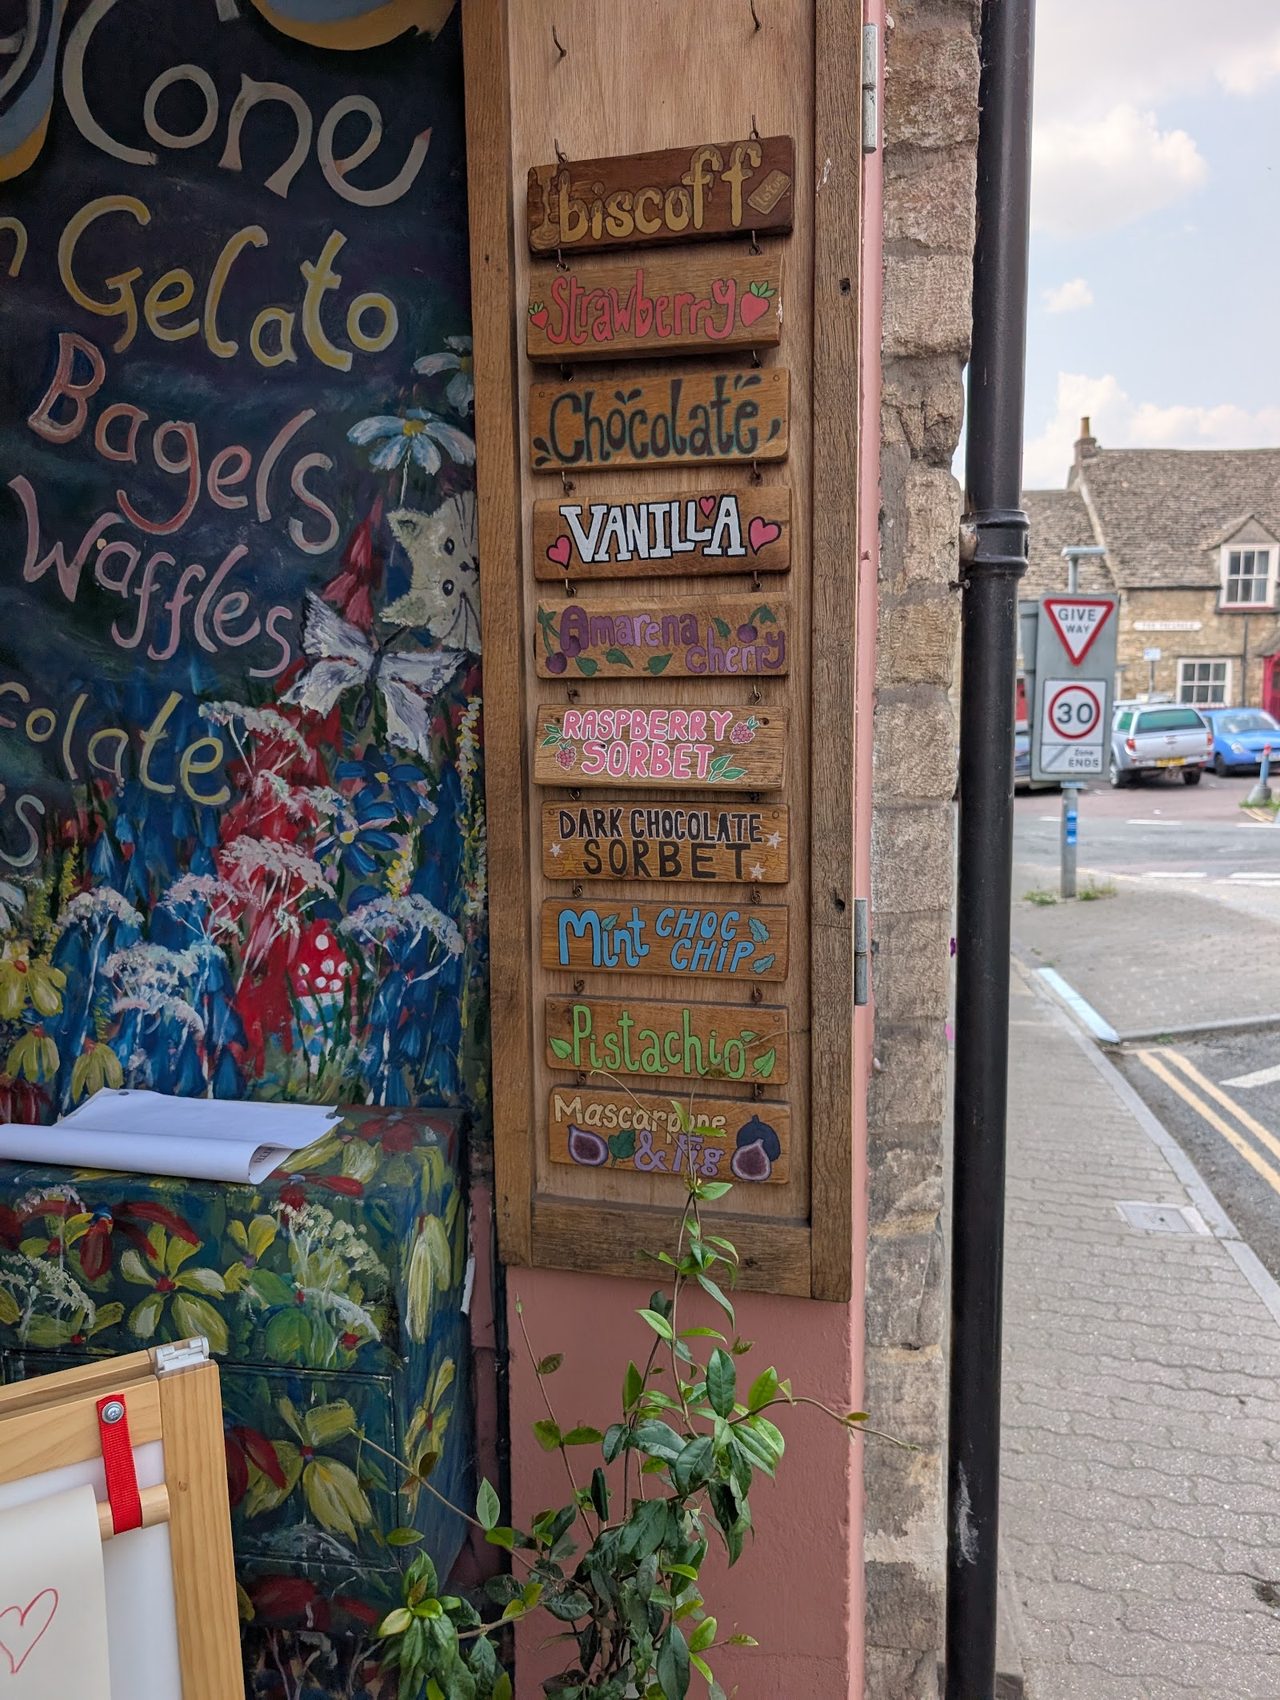 Cone
Gelato
Bagels
Waffles
colate
s
biscoff
Lotus
Strawberry
Chocolate
VANILLA
Amarena
cherry
RASPBERRY
SORBET
DARK CHOCOLATE
SORBET
Mint CHOC
CHIP
Pistachio
Mascarpone
& Fig
GIVE
WAY
30
Zone
ENDS